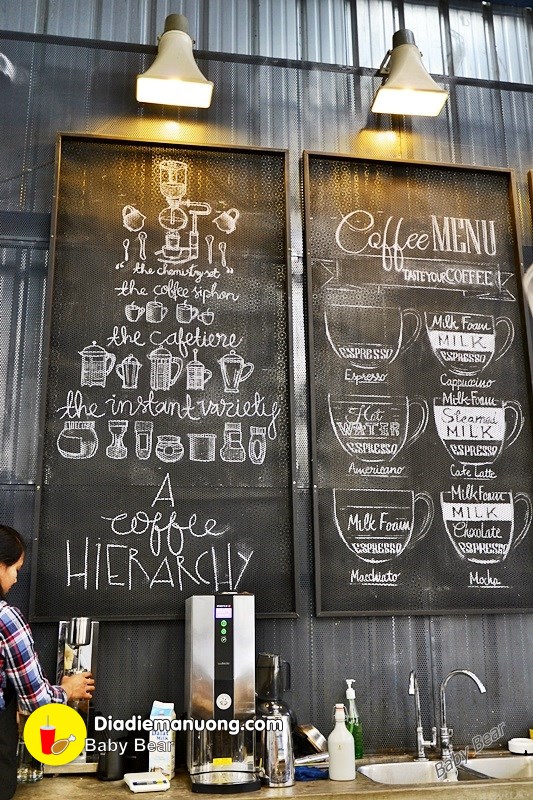 "the chemistry set"
the coffee siphon
the cafetiere
the instant variety
A
coffee
HIERARCHY
Coffee MENU
TASTE YOUR COFFEE
ESPRESSO
Espresso
Milk Foam
MILK
ESPRESSO
Cappuccino
Hot
WATER
ESPRESSO
Americano
Milk Foam
Steamed
MILK
ESPRESSO
Cafe Latte
Milk Foam
ESPRESSO
Macchiato
Milk Foam
MILK
Chocolate
ESPRESSO
Mocha
Diadiemanuong.com
Baby Bear
Baby Bear
Baby Bear
Baby Bear